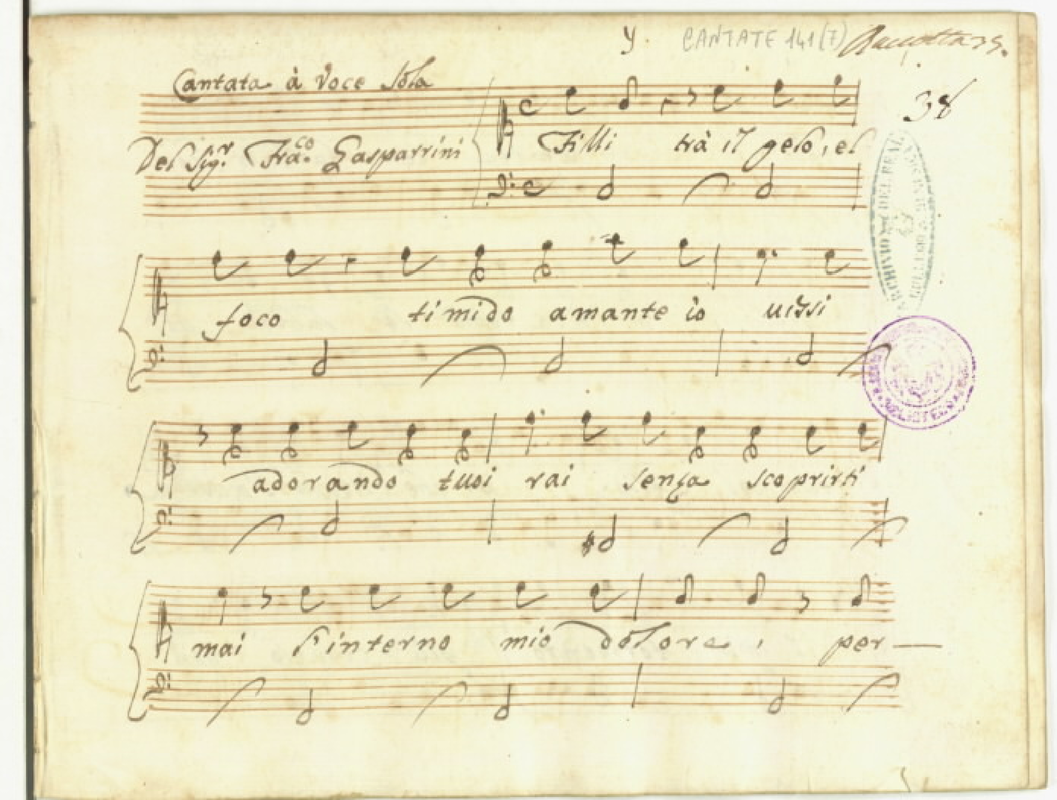 y. CANTATE 141(7) Raccolta
Cantata à Voce Sola
38
Del Sig.r Fra.co Gasparrini
Filli trà il gelo, e l
foco timido amante io uissi
adorando tuoi rai senza scoprirti
mai l'interno mio dolore, per—